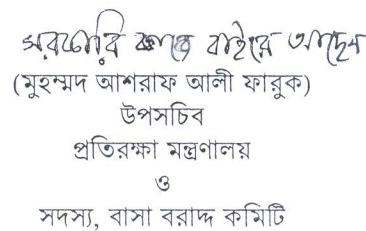 সরকারি কাজে বাইরে আছেন
(মুহম্মদ আশরাফ আলী ফারুক)
উপসচিব
প্রতিরক্ষা মন্ত্রণালয়
ও
সদস্য, বাসা বরাদ্দ কমিটি